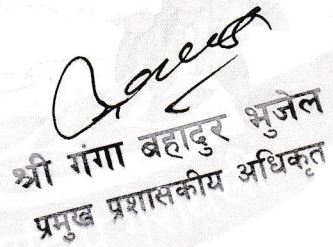 श्री गंगा बहादुर भुजेल
प्रमुख प्रशासकीय अधिकृत